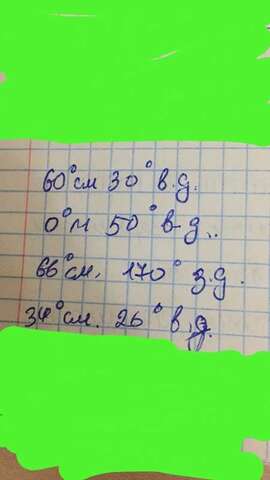 60°см 30° в.д.
0°м 50° в.д..
66°см. 170° з.д.
34°см. 26° в.д